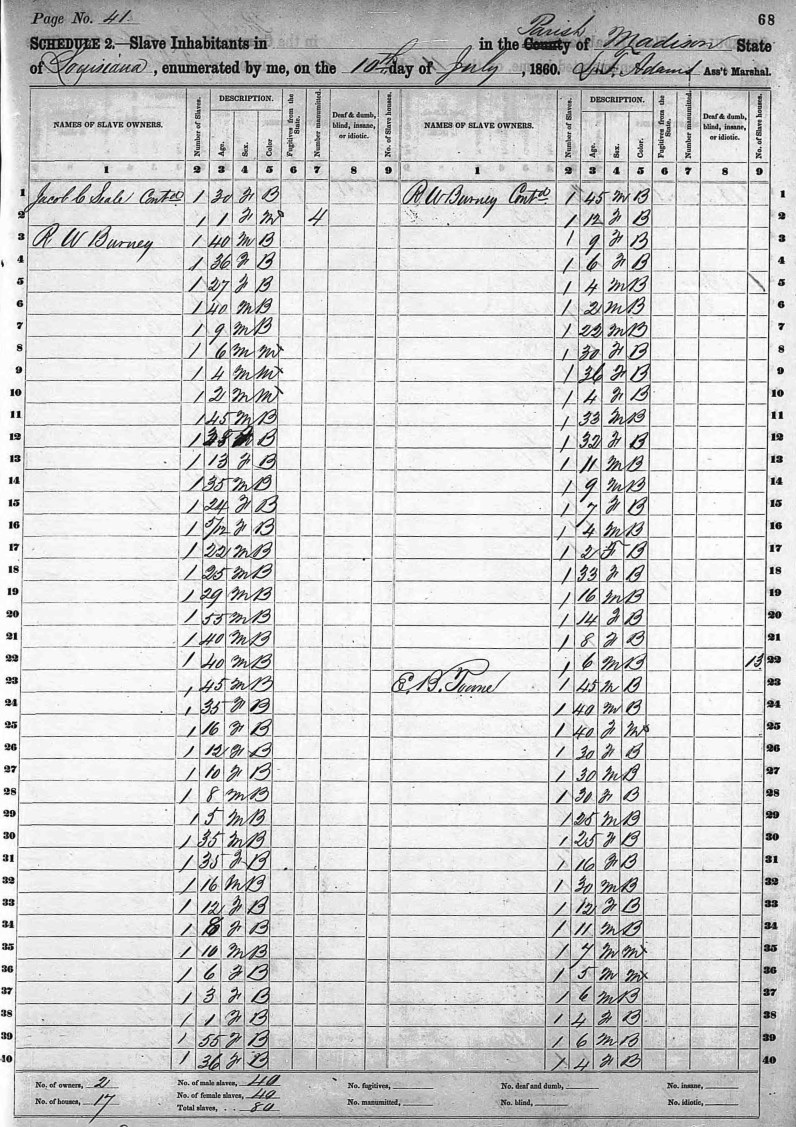 Page No. 41
68
SCHEDULE 2.—Slave Inhabitants in in the County Parish of Madison State
of Louisiana, enumerated by me, on the 10th day of July, 1860. Adams Ass't Marshal.
NAMES OF SLAVE OWNERS. Number of Slaves. DESCRIPTION. Age. Sex. Color Fugitives from the State. Number manumitted. Deaf & dumb, blind, insane, or idiotic. No. of Slave houses. NAMES OF SLAVE OWNERS. Number of Slaves. DESCRIPTION. Age. Sex. Color Fugitives from the State. Number manumitted. Deaf & dumb, blind, insane, or idiotic. No. of Slave houses.
1 2 3 4 5 6 7 8 9 1 2 3 4 5 6 7 8 9
1 Jacob C Seale Contd 1 30 F B R W Burney Contd 1 45 M B 1
2 1 1 F M 4 1 12 F B 2
3 R W Burney 1 40 M B 1 9 F B 3
4 1 36 F B 1 6 F B 4
5 1 27 F B 1 4 M B 5
6 1 40 M B 1 2 M B 6
7 1 9 M B 1 22 M B 7
8 1 6 M M 1 30 F B 8
9 1 4 M M 1 36 F B 9
10 1 2 M M 1 4 F B 10
11 1 45 M B 1 33 M B 11
12 1 B 1 32 F B 12
13 1 13 F B 1 11 M B 13
14 1 35 M B 1 9 M B 14
15 1 24 F B 1 7 F B 15
16 1 5/12 F B 1 4 M B 16
17 1 22 M B 1 2 F B 17
18 1 25 M B 1 33 F B 18
19 1 29 M B 1 16 M B 19
20 1 55 M B 1 14 F B 20
21 1 40 M B 1 8 F B 21
22 1 40 M B 1 6 M B 13 22
23 1 45 M B E. B. Towne 1 45 M B 23
24 1 35 F B 1 40 M B 24
25 1 16 F B 1 40 F M 25
26 1 12 F B 1 30 F B 26
27 1 10 F B 1 30 M B 27
28 1 8 M B 1 30 F B 28
29 1 5 M B 1 25 M B 29
30 1 35 M B 1 25 F B 30
31 1 35 F B 1 16 F B 31
32 1 16 M B 1 30 M B 32
33 1 12 F B 1 12 F B 33
34 1 8 F B 1 11 M B 34
35 1 10 M B 1 7 M M 35
36 1 6 F B 1 5 M M 36
37 1 3 F B 1 6 M B 37
38 1 1 F B 1 4 F B 38
39 1 55 F B 1 6 M B 39
40 1 36 F B 1 4 F B 40
No. of owners, 2 No. of male slaves, 40 No. fugitives, No. deaf and dumb, No. insane,
No. of houses, 17 No. of female slaves, 40 No. manumitted, No. blind, No. idiotic,
Total slaves, 80